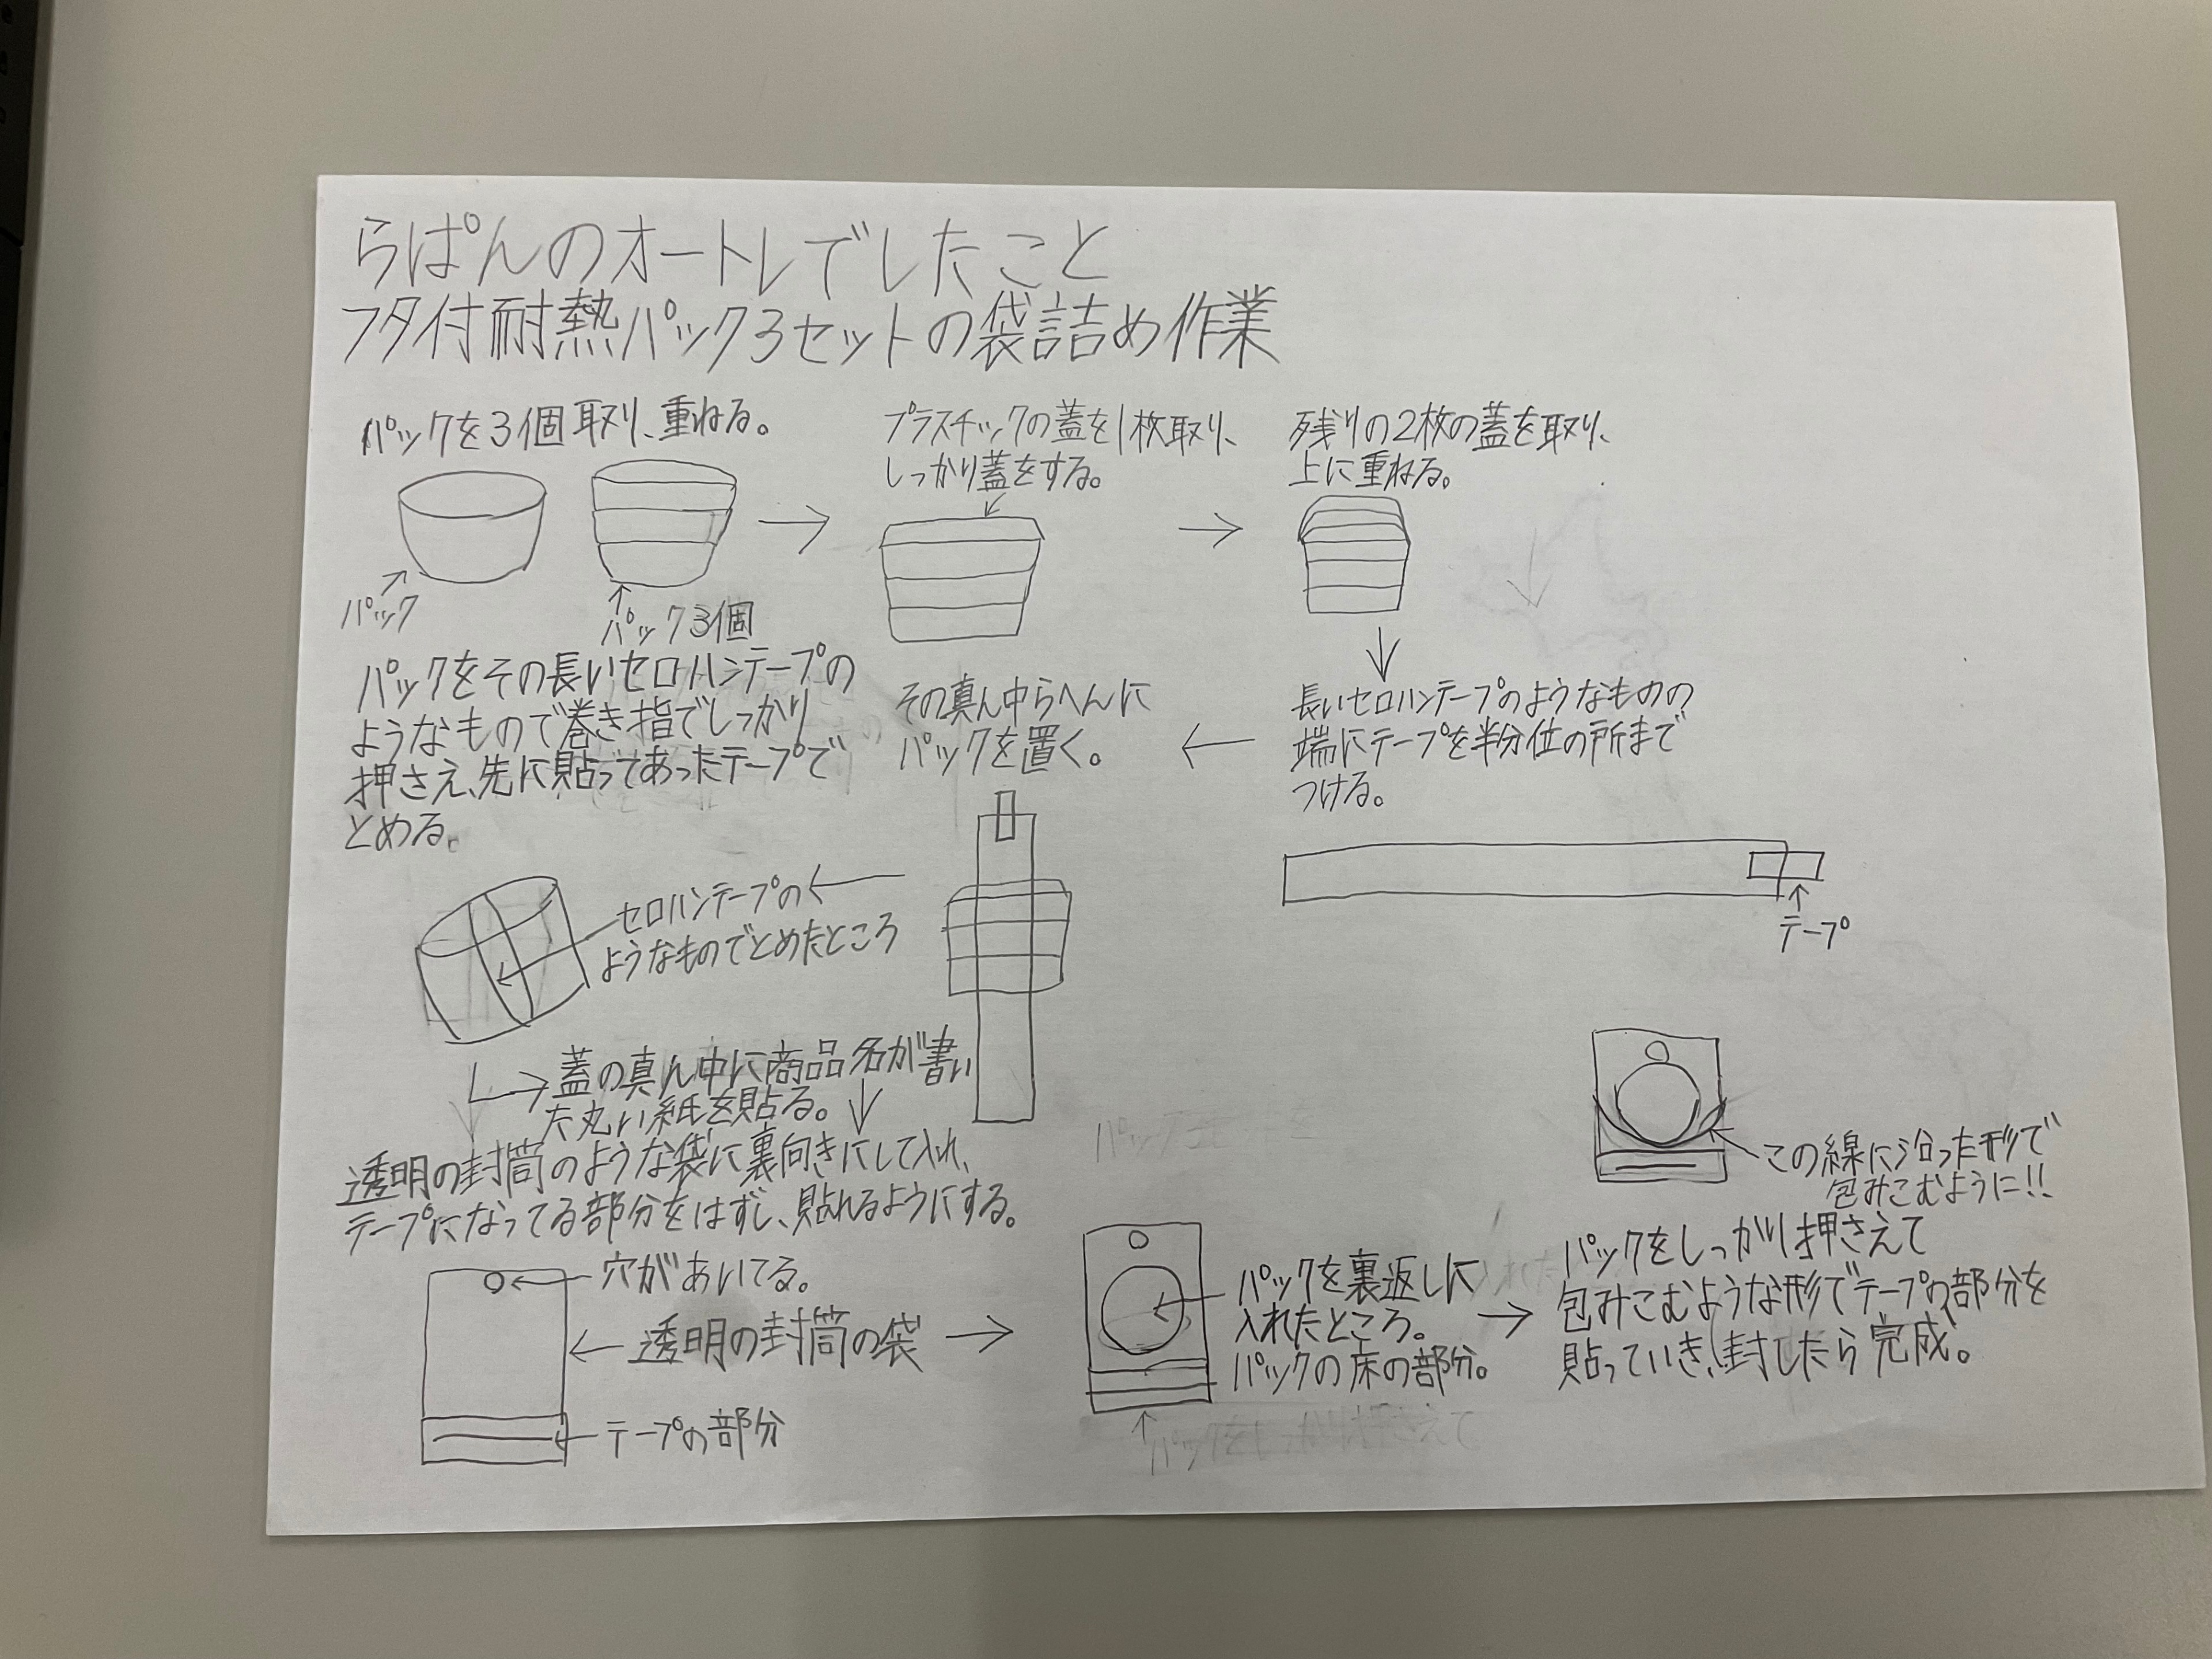 らぱんのオートレでしたこと
フタ付耐熱パック3セットの袋詰め作業
パックを3個取り、重ねる。
パック
パック3個
プラスチックの蓋を1枚取り、
しっかり蓋をする。
残りの2枚の蓋を取り、
上に重ねる。
長いセロハンテープのようなものの
端にテープを半分位の所まで
つける。
テープ
その真ん中らへんに
パックを置く。
パックをその長いセロハンテープの
ようなもので巻き指でしっかり
押さえ、先に貼ってあったテープで
とめる。
セロハンテープの
ようなものでとめたところ
蓋の真ん中に商品名が書い
た丸い紙を貼る。
透明の封筒のような袋に裏向きにして入れ、
テープになってる部分をはずし、貼れるようにする。
穴があいてる。
透明の封筒の袋
テープの部分
パックを裏返しに
入れたところ。
パックの床の部分。
この線に沿った形で
包みこむように!!
パックをしっかり押さえて
包みこむような形でテープの部分を
貼っていき、封したら完成。